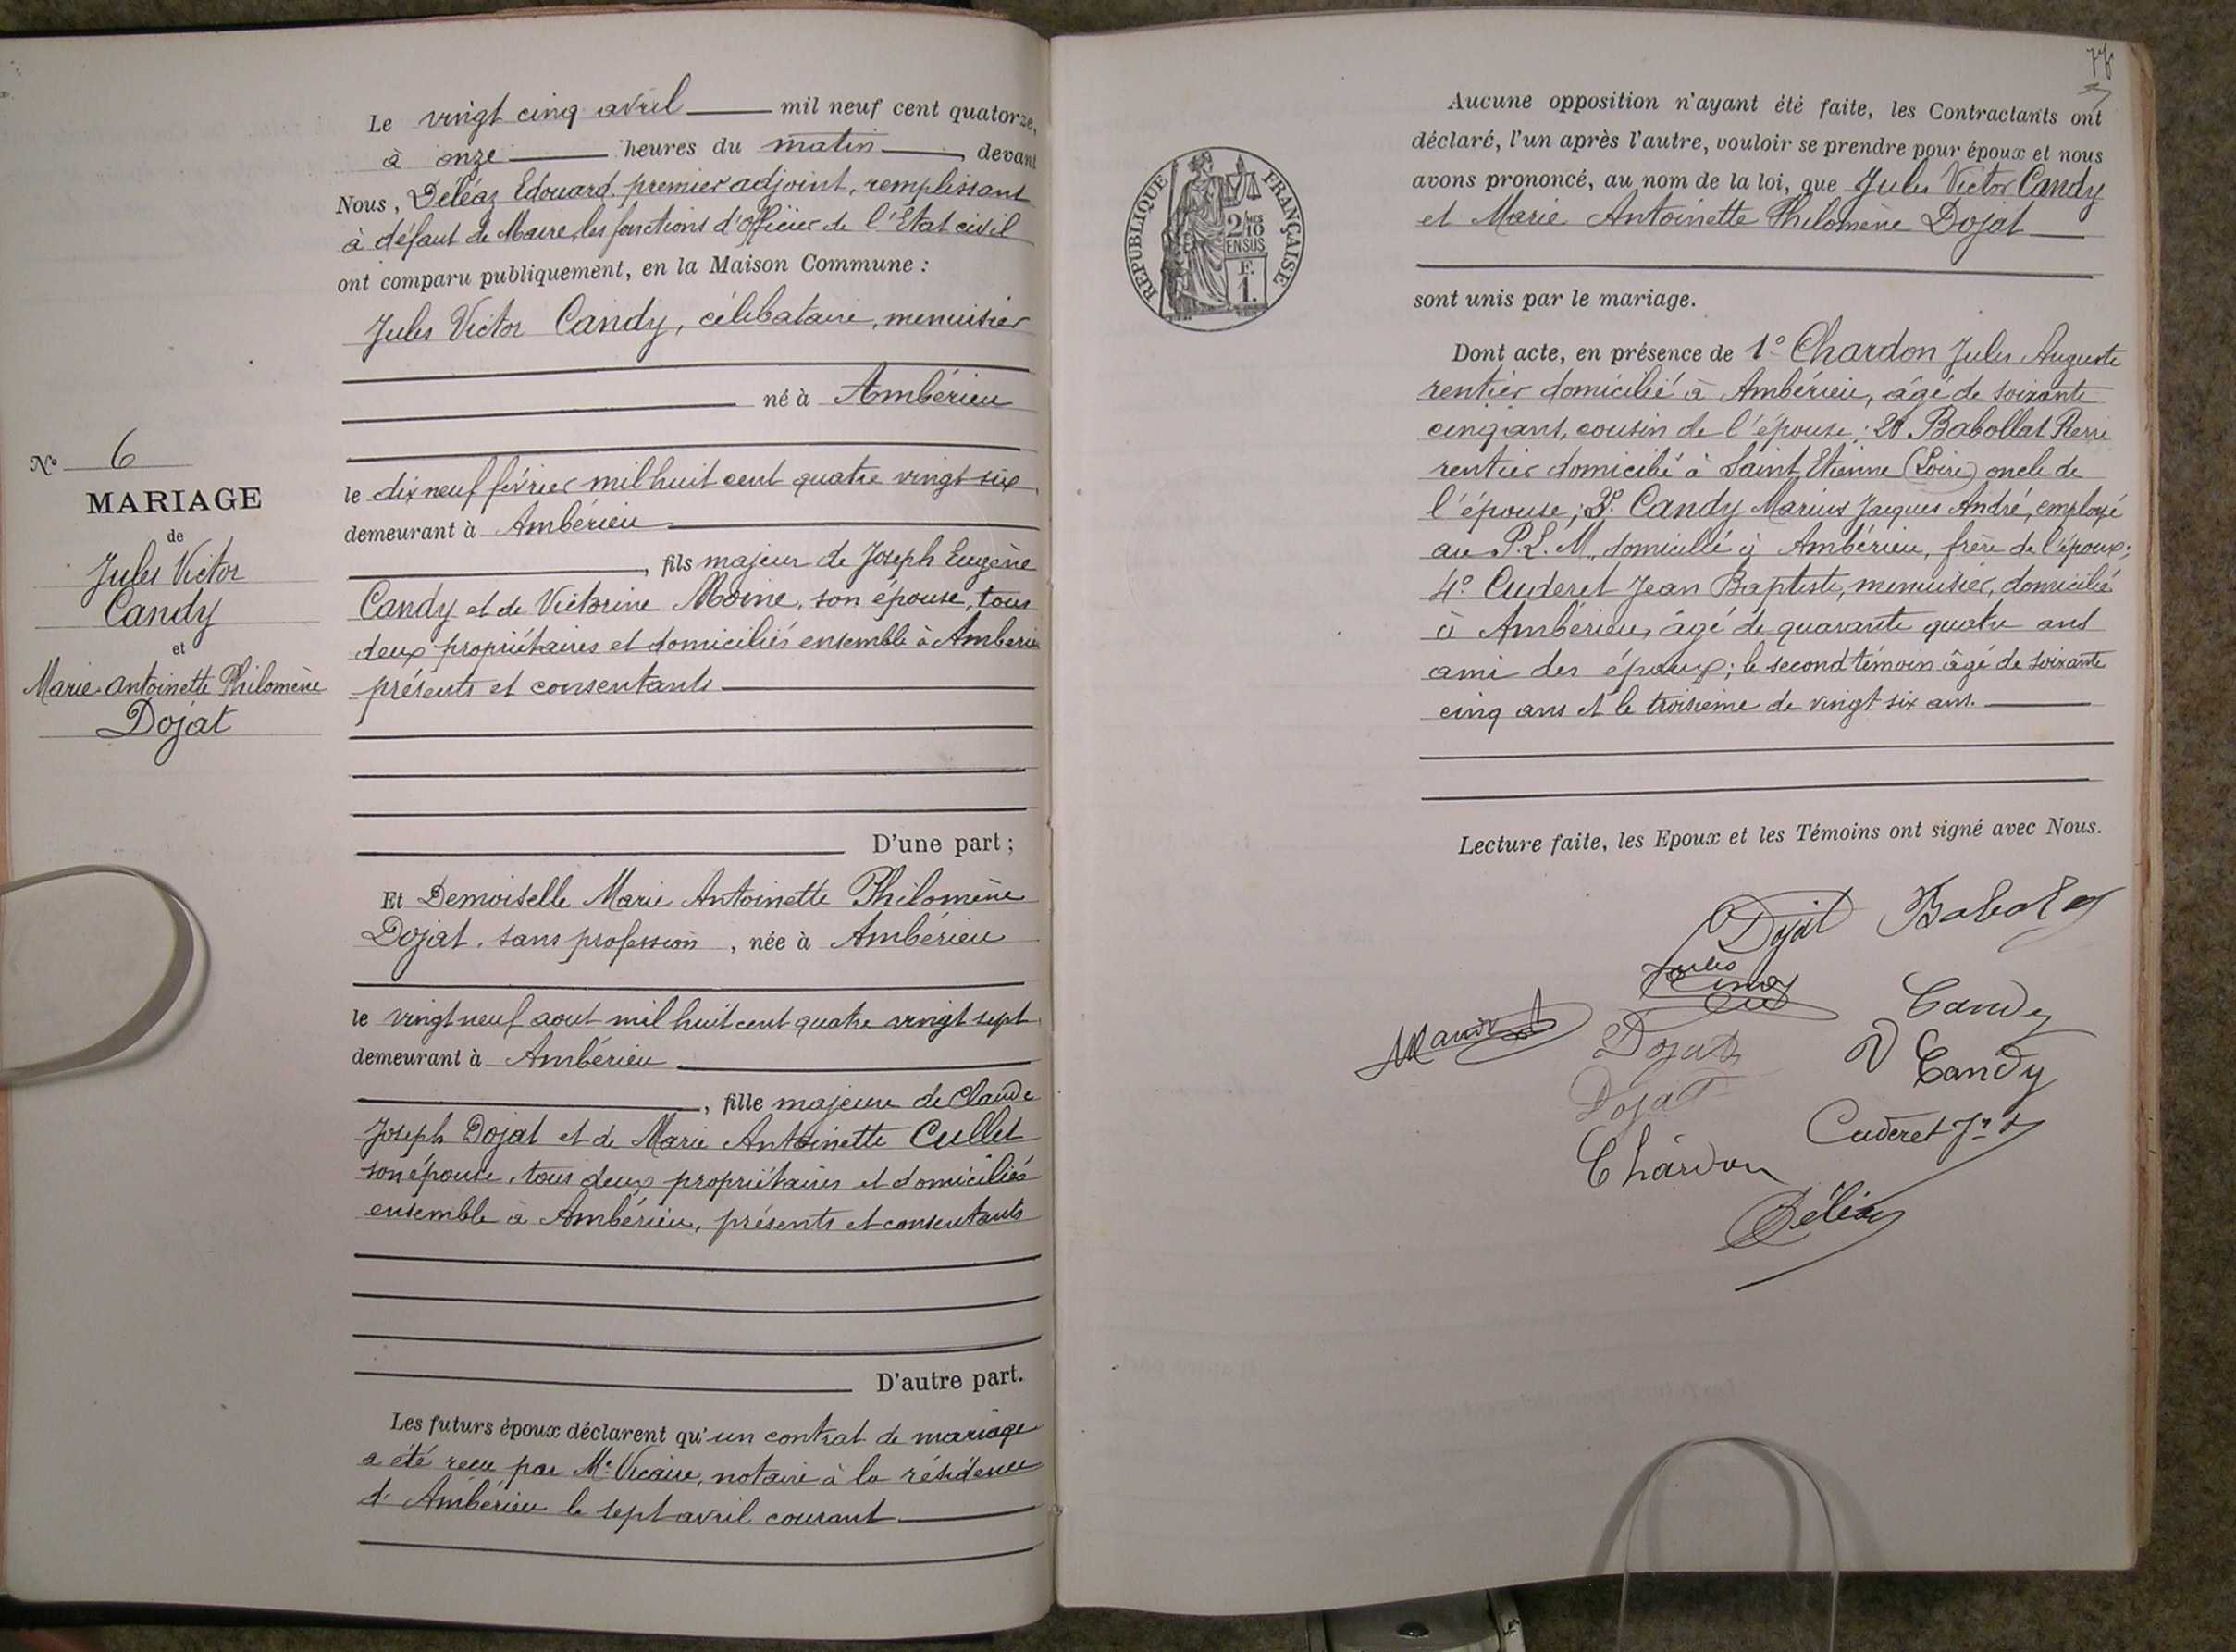 N° 6
MARIAGE
de
Jules Victor
Candy
et
Marie Antoinette Philomène
Dojat
Le vingt cinq avril mil neuf cent quatorze,
à onze heures du matin, devant
Nous, Déléaz Edouard, premier adjoint, remplissant
à défaut de Maire, les fonctions d'officier de l'Etat civil
ont comparu publiquement, en la Maison Commune :
Jules Victor Candy, célibataire, menuisier
né à Ambérieu
le dix neuf février mil huit cent quatre vingt six,
demeurant à Ambérieu
, fils majeur de Joseph Eugène
Candy et de Victorine Moine, son épouse, tous
deux propriétaires et domiciliés ensemble à Ambérieu
présents et consentants
D'une part ;
Et Demoiselle Marie Antoinette Philomène
Dojat, sans profession, née à Ambérieu
le vingt neuf aout mil huit cent quatre vingt sept,
demeurant à Ambérieu
, fille majeure de Claude
Joseph Dojat et de Marie Antoinette Cullet
son épouse, tous deux propriétaires et domiciliés
ensemble à Ambérieu, présents et consentants
D'autre part.
Les futurs époux déclarent qu'un contrat de mariage
a été reçu par Me Vicaire, notaire à la résidence
d'Ambérieu le sept avril courant
RÉPUBLIQUE FRANÇAISE
2/10
EN SUS
F.
1.
Aucune opposition n'ayant été faite, les Contractants ont
déclaré, l'un après l'autre, vouloir se prendre pour époux et nous
avons prononcé, au nom de la loi, que Jules Victor Candy
et Marie Antoinette Philomène Dojat
sont unis par le mariage.
Dont acte, en présence de 1° Chardon Jules Auguste
rentier domicilié à Ambérieu, âgé de soixante
cinq ans, cousin de l'épouse ; 2° Babollat Pierre
rentier domicilié à Saint Etienne (Loire) oncle de
l'épouse ; 3° Candy Marius Jacques André, employé
au P.L.M. domicilié à Ambérieu, frère de l'époux ;
4° Cuderet Jean Baptiste, menuisier, domicilié
à Ambérieu, âgé de quarante quatre ans
ami des époux ; le second témoin âgé de soixante
cinq ans et le troisième de vingt six ans.
Lecture faite, les Epoux et les Témoins ont signé avec Nous.
Dojat
Jules
Candy
Dojat
V Candy
Dojat
Cuderet
Chardon
Déléaz